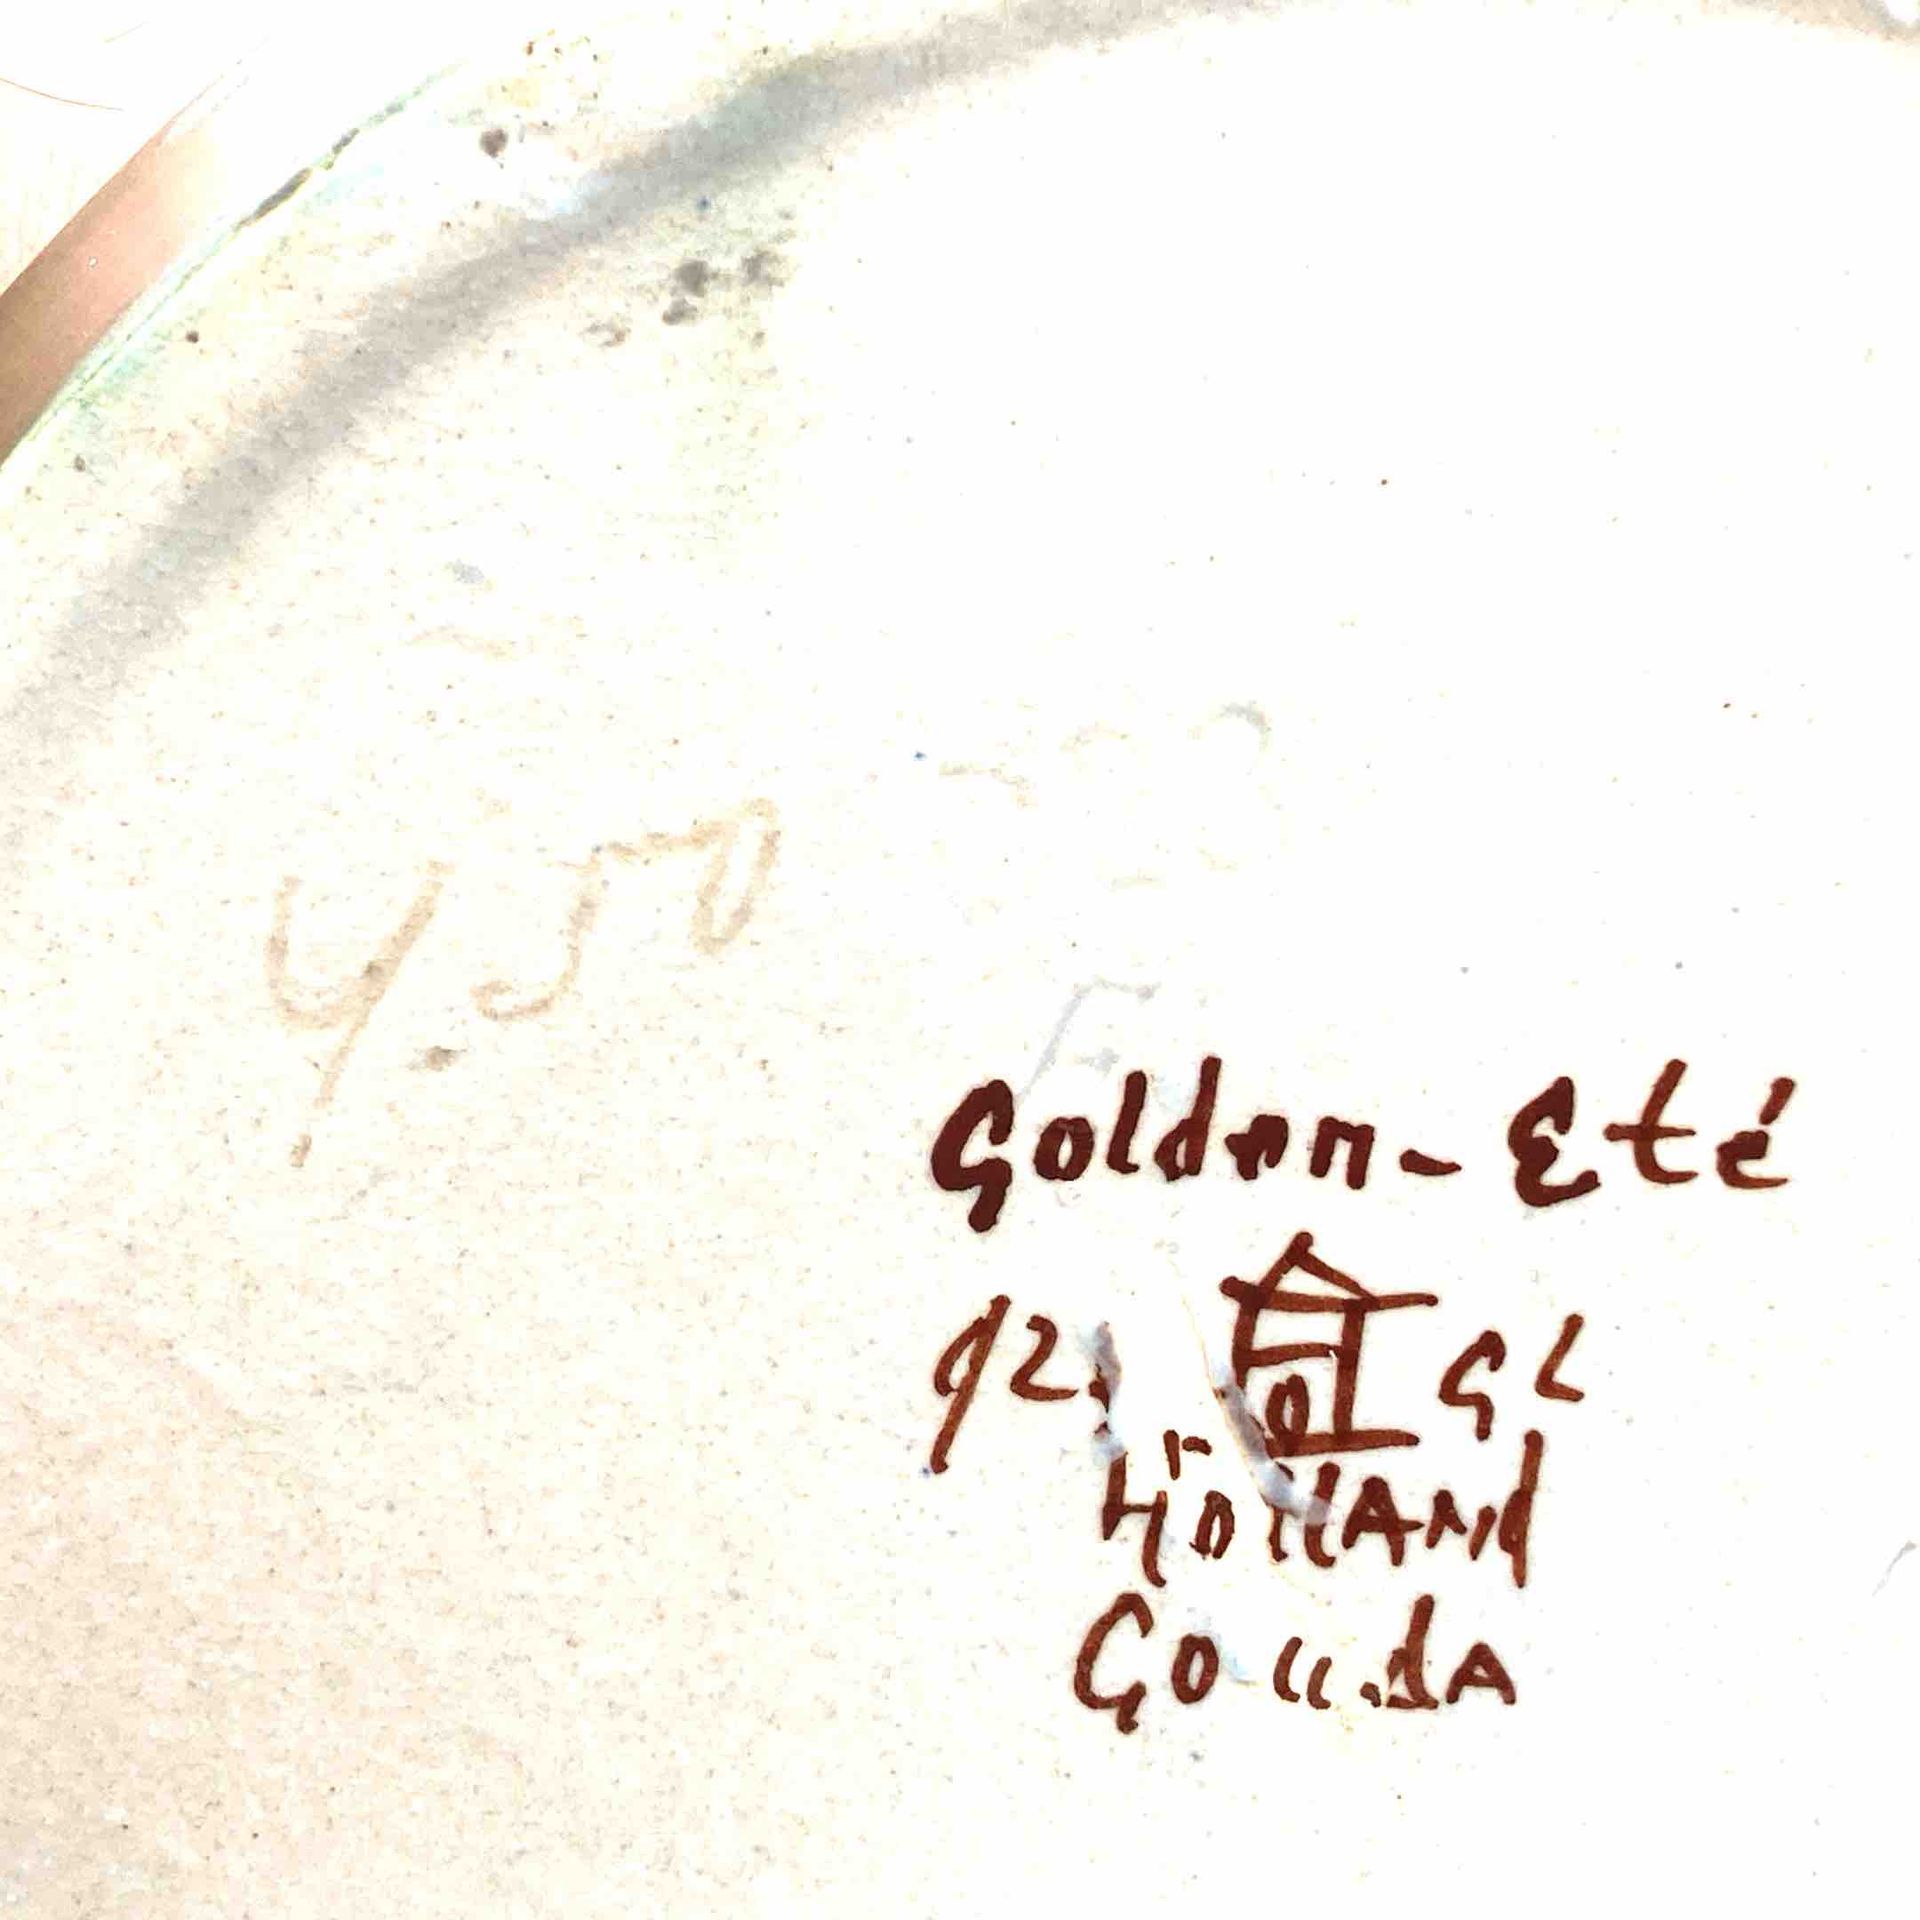 450
Golden-Eté
12 GL
HOLLAND
GOUDA